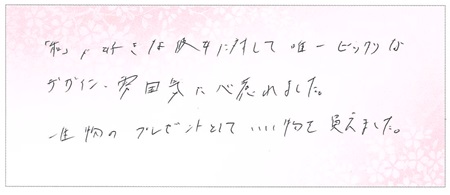 「和」が好きな彼女に対して唯一ピッタリな
デザイン、雰囲気に心惹れました。
一生物のプレゼントとしていい物を買えました。